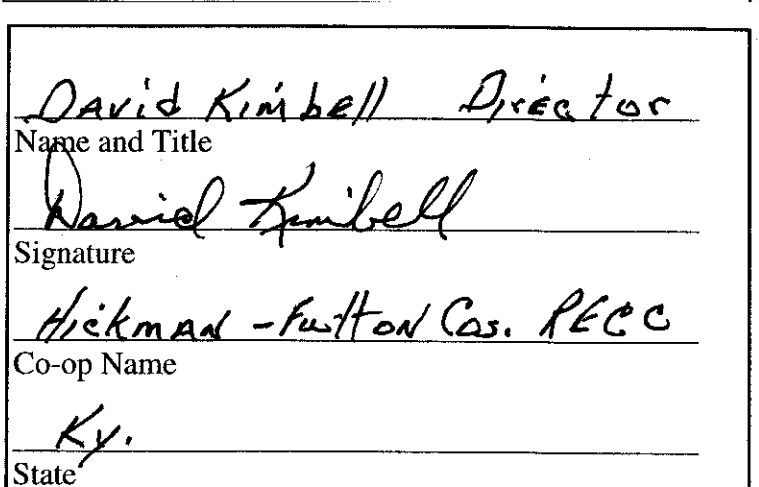 David Kimbell Director
Name and Title
David Kimbell
Signature
Hickman - Fulton Cos. RECC
Co-op Name
Ky.
State